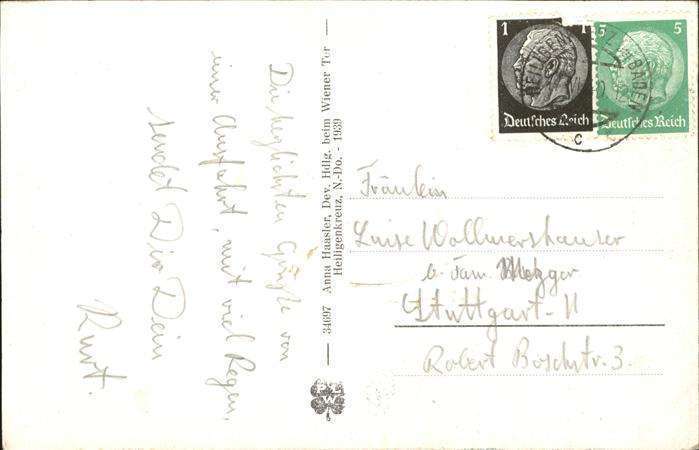 Die herzlichsten Grüße von
einer Autofahrt, mit viel Regen,
sendet Dir Dein
Kurt.
34697 Anna Haasler, Dev. Hdlg. beim Wiener Tor
Heiligenkreuz, N.-Do. - 1939
1 1
Deutsches Reich
5 5
Deutsches Reich
HEILIGEN BADEN
c
Fräulein
Luise Wollmershauser
b. Fam. Metzger
Stuttgart-N
Robert Boschstr. 3.
W